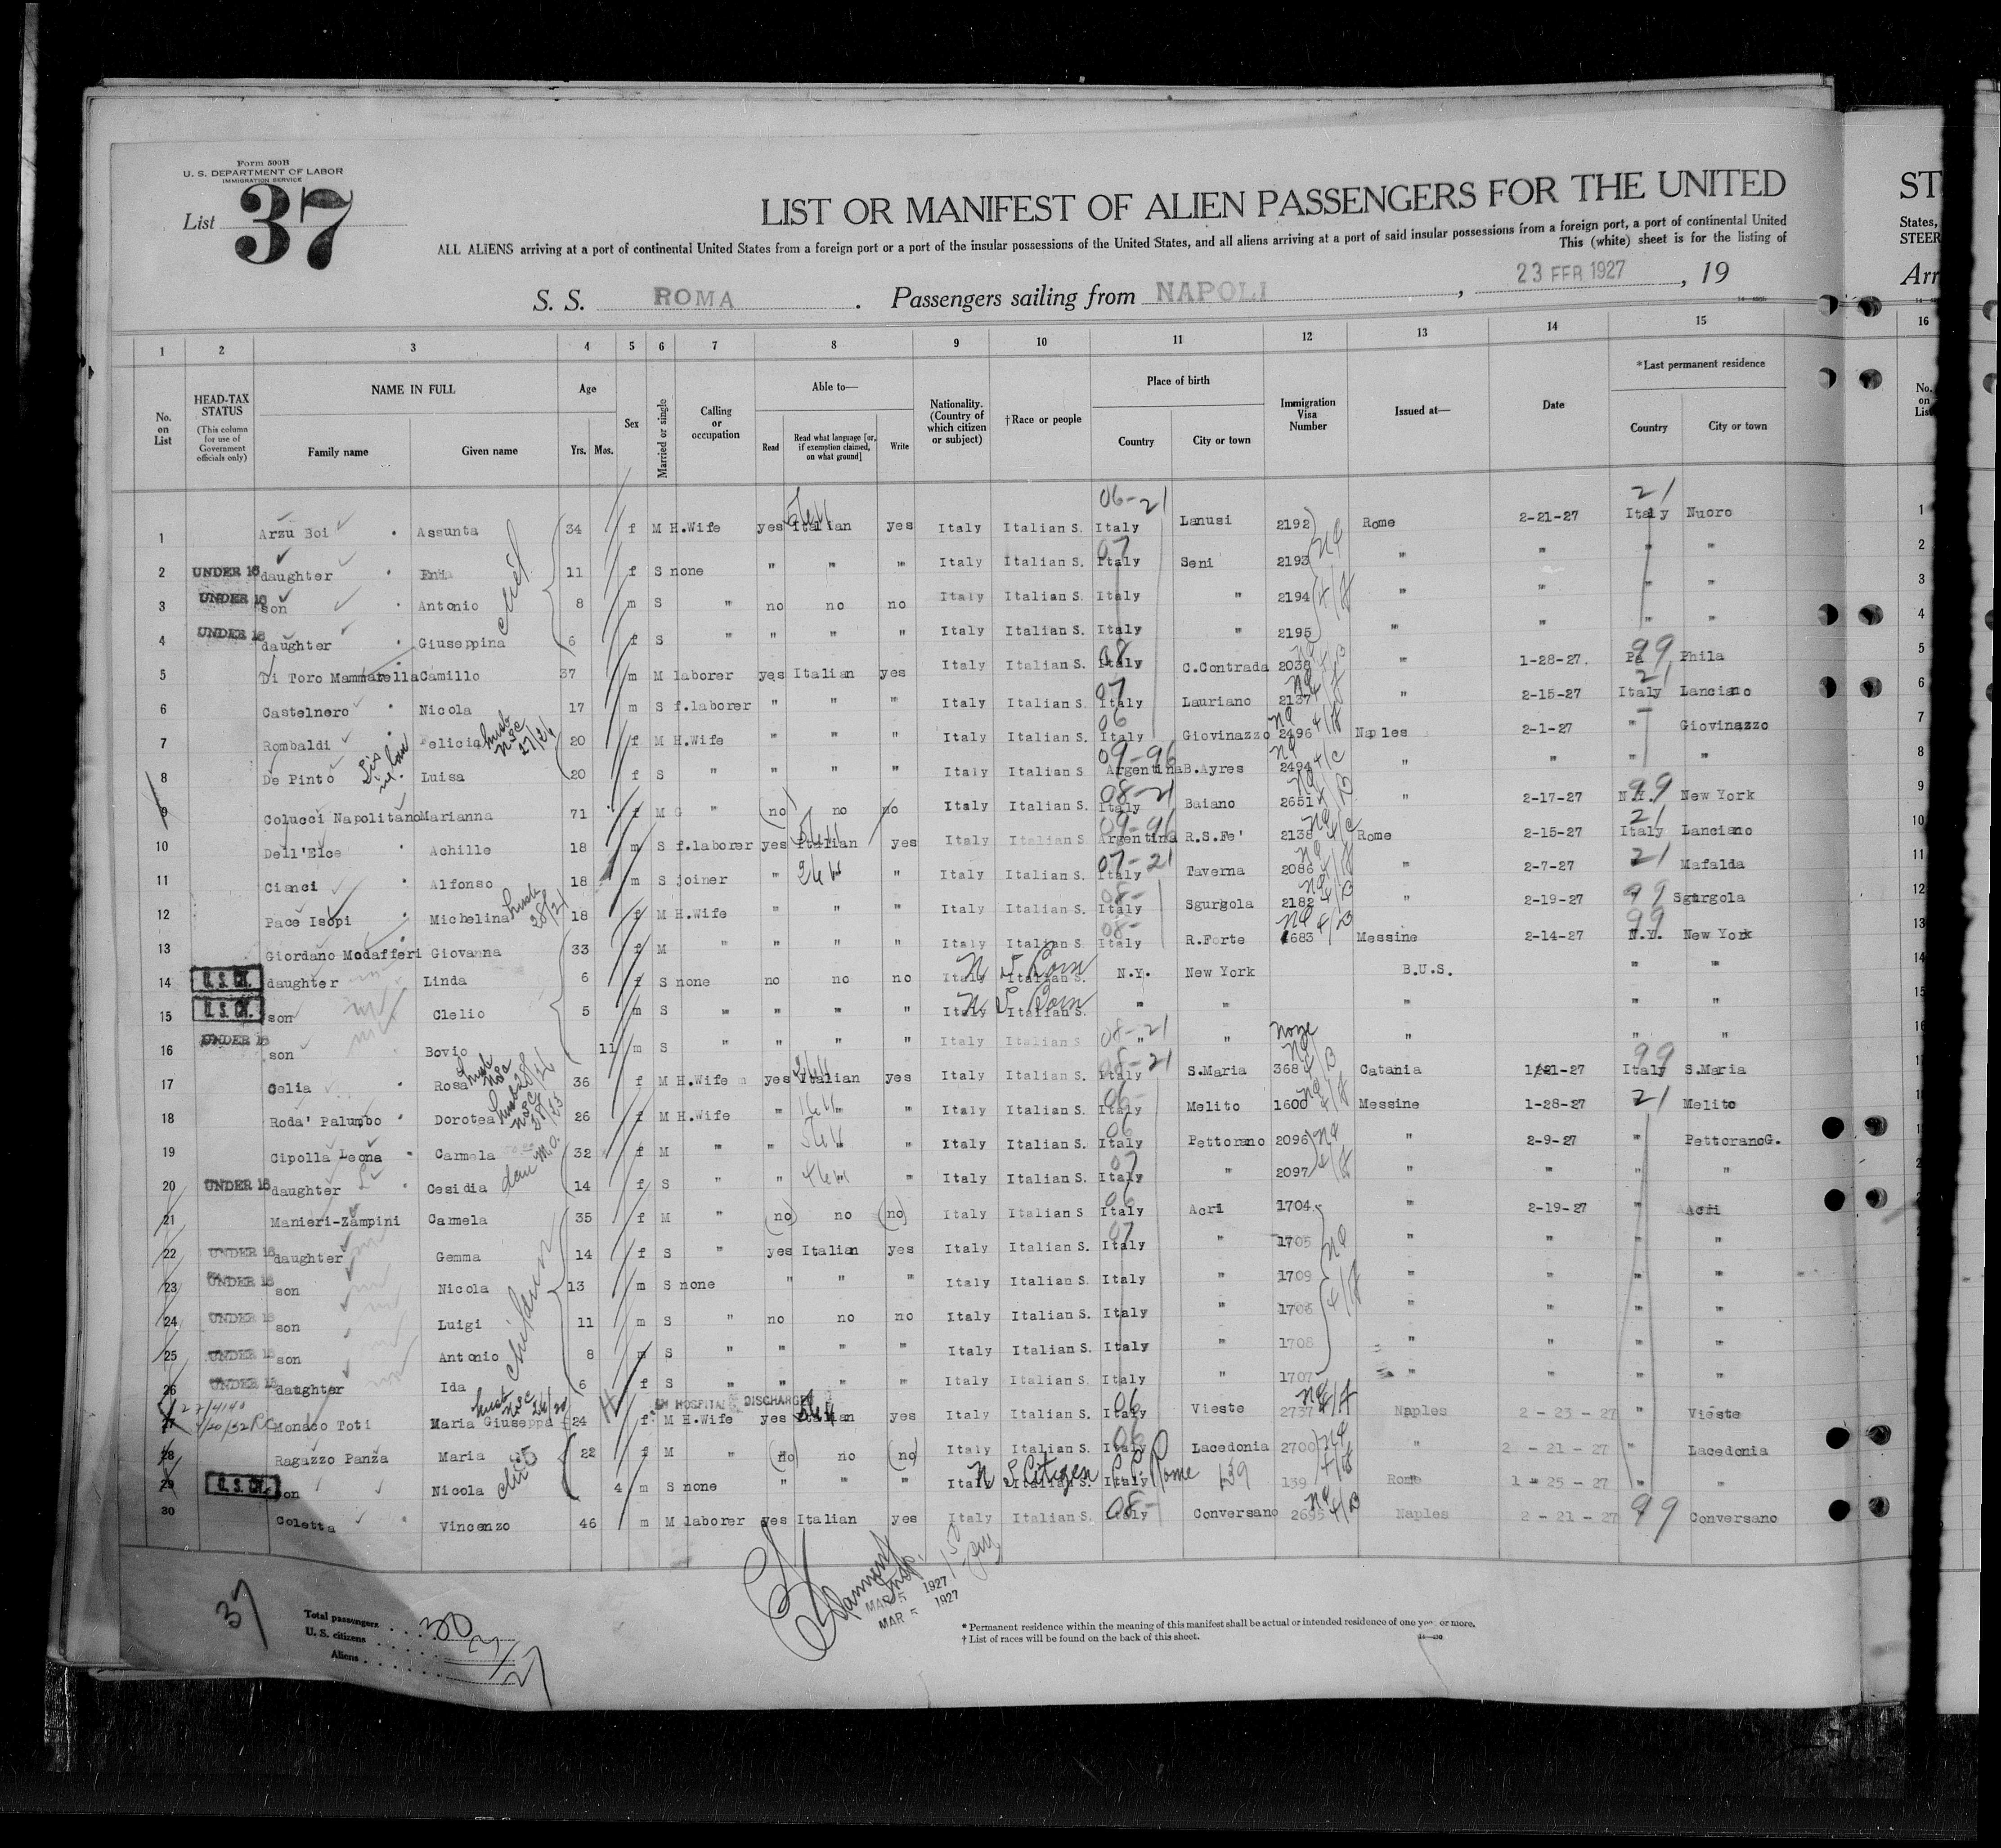 Form 500B
U. S. DEPARTMENT OF LABOR
IMMIGRATION SERVICE
List 37
LIST OR MANIFEST OF ALIEN PASSENGERS FOR THE UNITED
ST
ALL ALIENS arriving at a port of continental United States from a foreign port or a port of the insular possessions of the United States, and all aliens arriving at a port of said insular possessions from a foreign port, a port of continental United
States,
This (white) sheet is for the listing of
STEER
S. S. ROMA . Passengers sailing from NAPOLI , 23 FEB 1927 , 19
Arr
1 2 3 4 5 6 7 8 9 10 11 12 13 14 15 16
No. on List
HEAD-TAX STATUS
(This column for use of Government officials only)
NAME IN FULL
Family name Given name
Age
Yrs. Mos.
Sex
Married or single
Calling or occupation
Able to—
Read Read what language [or, if exemption claimed, on what ground] Write
Nationality. (Country of which citizen or subject)
†Race or people
Place of birth
Country City or town
Immigration Visa Number
Issued at—
Date
*Last permanent residence
Country City or town
No. on List
06-21 21
1 Arzu Boi Assunta 34 f M H.Wife yes Italian yes Italy Italian S. Italy Lanusi 2192 Rome 2-21-27 Italy Nuoro 1
2 UNDER 16 daughter 11 f S none " " " Italy Italian S. Italy 07 Seni 2193 " " " " 2
3 UNDER 16 son Antonio 8 m S " no no no Italy Italian S. Italy " 2194 " " " " 3
4 UNDER 16 daughter Giuseppina 6 f S " " " " Italy Italian S. Italy " 2195 " " " " 4
5 Di Toro Mammarella Camillo 37 m M laborer yes Italian yes Italy Italian S. Italy 08 C.Contrada 2038 " 1-28-27. Pa 99 Phila 5
6 Castelnero Nicola 17 m S f.laborer " " " Italy Italian S. Italy 07 Lauriano 2137 " 2-15-27 Italy 21 Lanciano 6
7 Rombaldi Felicia 20 f M H.Wife " " " Italy Italian S. Italy 06 Giovinazzo 2496 Naples 2-1-27 " Giovinazzo 7
8 De Pinto Luisa 20 f S " " " " Italy Italian S Argentina 09-96 B.Ayres 2494 " " " " 8
9 Colucci Napolitano Marianna 71 f M " (no) no no Italy Italian S. Italy 08-21 Baiano 2651 " 2-17-27 N.Y. 99 New York 9
10 Dell'Elce Achille 18 m S f.laborer yes Italian yes Italy Italian S. Argentina 09-96 R.S.Fe' 2138 Rome 2-15-27 Italy 21 Lanciano 10
11 Cianci Alfonso 18 m S joiner " " Italy Italian S. Italy 07-21 Taverna 2086 " 2-7-27 21 Mafalda 11
12 Pace Isopi Michelina 18 f M H.Wife " " " Italy Italian S. Italy 08- Sgurgola 2182 " 2-19-27 99 Sgurgola 12
13 Giordano Modafferi Giovanna 33 f M " " " " Italy Italian S. Italy 08- R.Forte 1683 Messine 2-14-27 N.Y. 99 New York 13
14 U. S. Cit. daughter Linda 6 f S none no no no Italy Italian S. Born N.Y. New York B.U.S. " " 14
15 U. S. Cit. son Clelio 5 m S " " " " Italy Italian S. Born " " " " " 15
16 UNDER 16 son Bovio 11 m S " " " " Italy Italian S " 08-21 " none " " " 16
17 Celia Rosa 36 f M H.Wife yes Italian yes Italy Italian S. Italy 08-21 S.Maria 368 Catania 1-21-27 Italy 99 S.Maria
18 Roda' Palumbo Dorotea 26 f M H.Wife " " " Italy Italian S. Italy 06- Melito 1600 Messine 1-28-27 21 Melito
19 Cipolla Leona Carmela 32 f M " " " " Italy Italian S. Italy 06 Pettorano 2096 " 2-9-27 " PettoranoG.
20 UNDER 16 daughter Cesidia 14 f S " " " " Italy Italian S. Italy 07 " 2097 " " " "
21 Manieri-Zampini Carmela 35 f M " (no) no (no) Italy Italian S Italy 06 Acri 1704 " 2-19-27 " Acri
22 UNDER 16 daughter Gemma 14 f S " yes Italian yes Italy Italian S. Italy 07 " 1705 " " " "
23 UNDER 16 son Nicola 13 m S none " " " Italy Italian S. Italy " 1709 " " " "
24 UNDER 16 son Luigi 11 m S " no no no Italy Italian S. Italy " 1706 " " " "
25 UNDER 16 son Antonio 8 m S " " " " Italy Italian S. Italy " 1708 " " " "
26 UNDER 16 daughter Ida 6 f S " " " " Italy Italian S. Italy " 1707 " " " "
IN HOSPITAL DISCHARGED
27 Monaco Toti Maria Giuseppa 24 f M H.Wife yes Italian yes Italy Italian S. Italy 06 Vieste 2737 Naples 2 - 23 - 27 " Vieste
28 Ragazzo Panza Maria 22 f M " (no) no (no) Italy Italian S. Italy 06 Lacedonia 2700 " 2 - 21 - 27 " Lacedonia
29 U. S. Cit. son Nicola 4 m S none " " " Italy Italian S. Citizen Italy Rome 139 139 Rome 1 - 25 - 27 " "
30 Coletta Vincenzo 46 m M laborer yes Italian yes Italy Italian S. Italy 08- Conversano 2695 Naples 2 - 21 - 27 99 Conversano
37
Total passengers . . . . 30
U. S. citizens . . . . . 3
Aliens . . . . . . 27
Insp.
MAR 5 1927
MAR 5 1927
* Permanent residence within the meaning of this manifest shall be actual or intended residence of one year or more.
† List of races will be found on the back of this sheet.